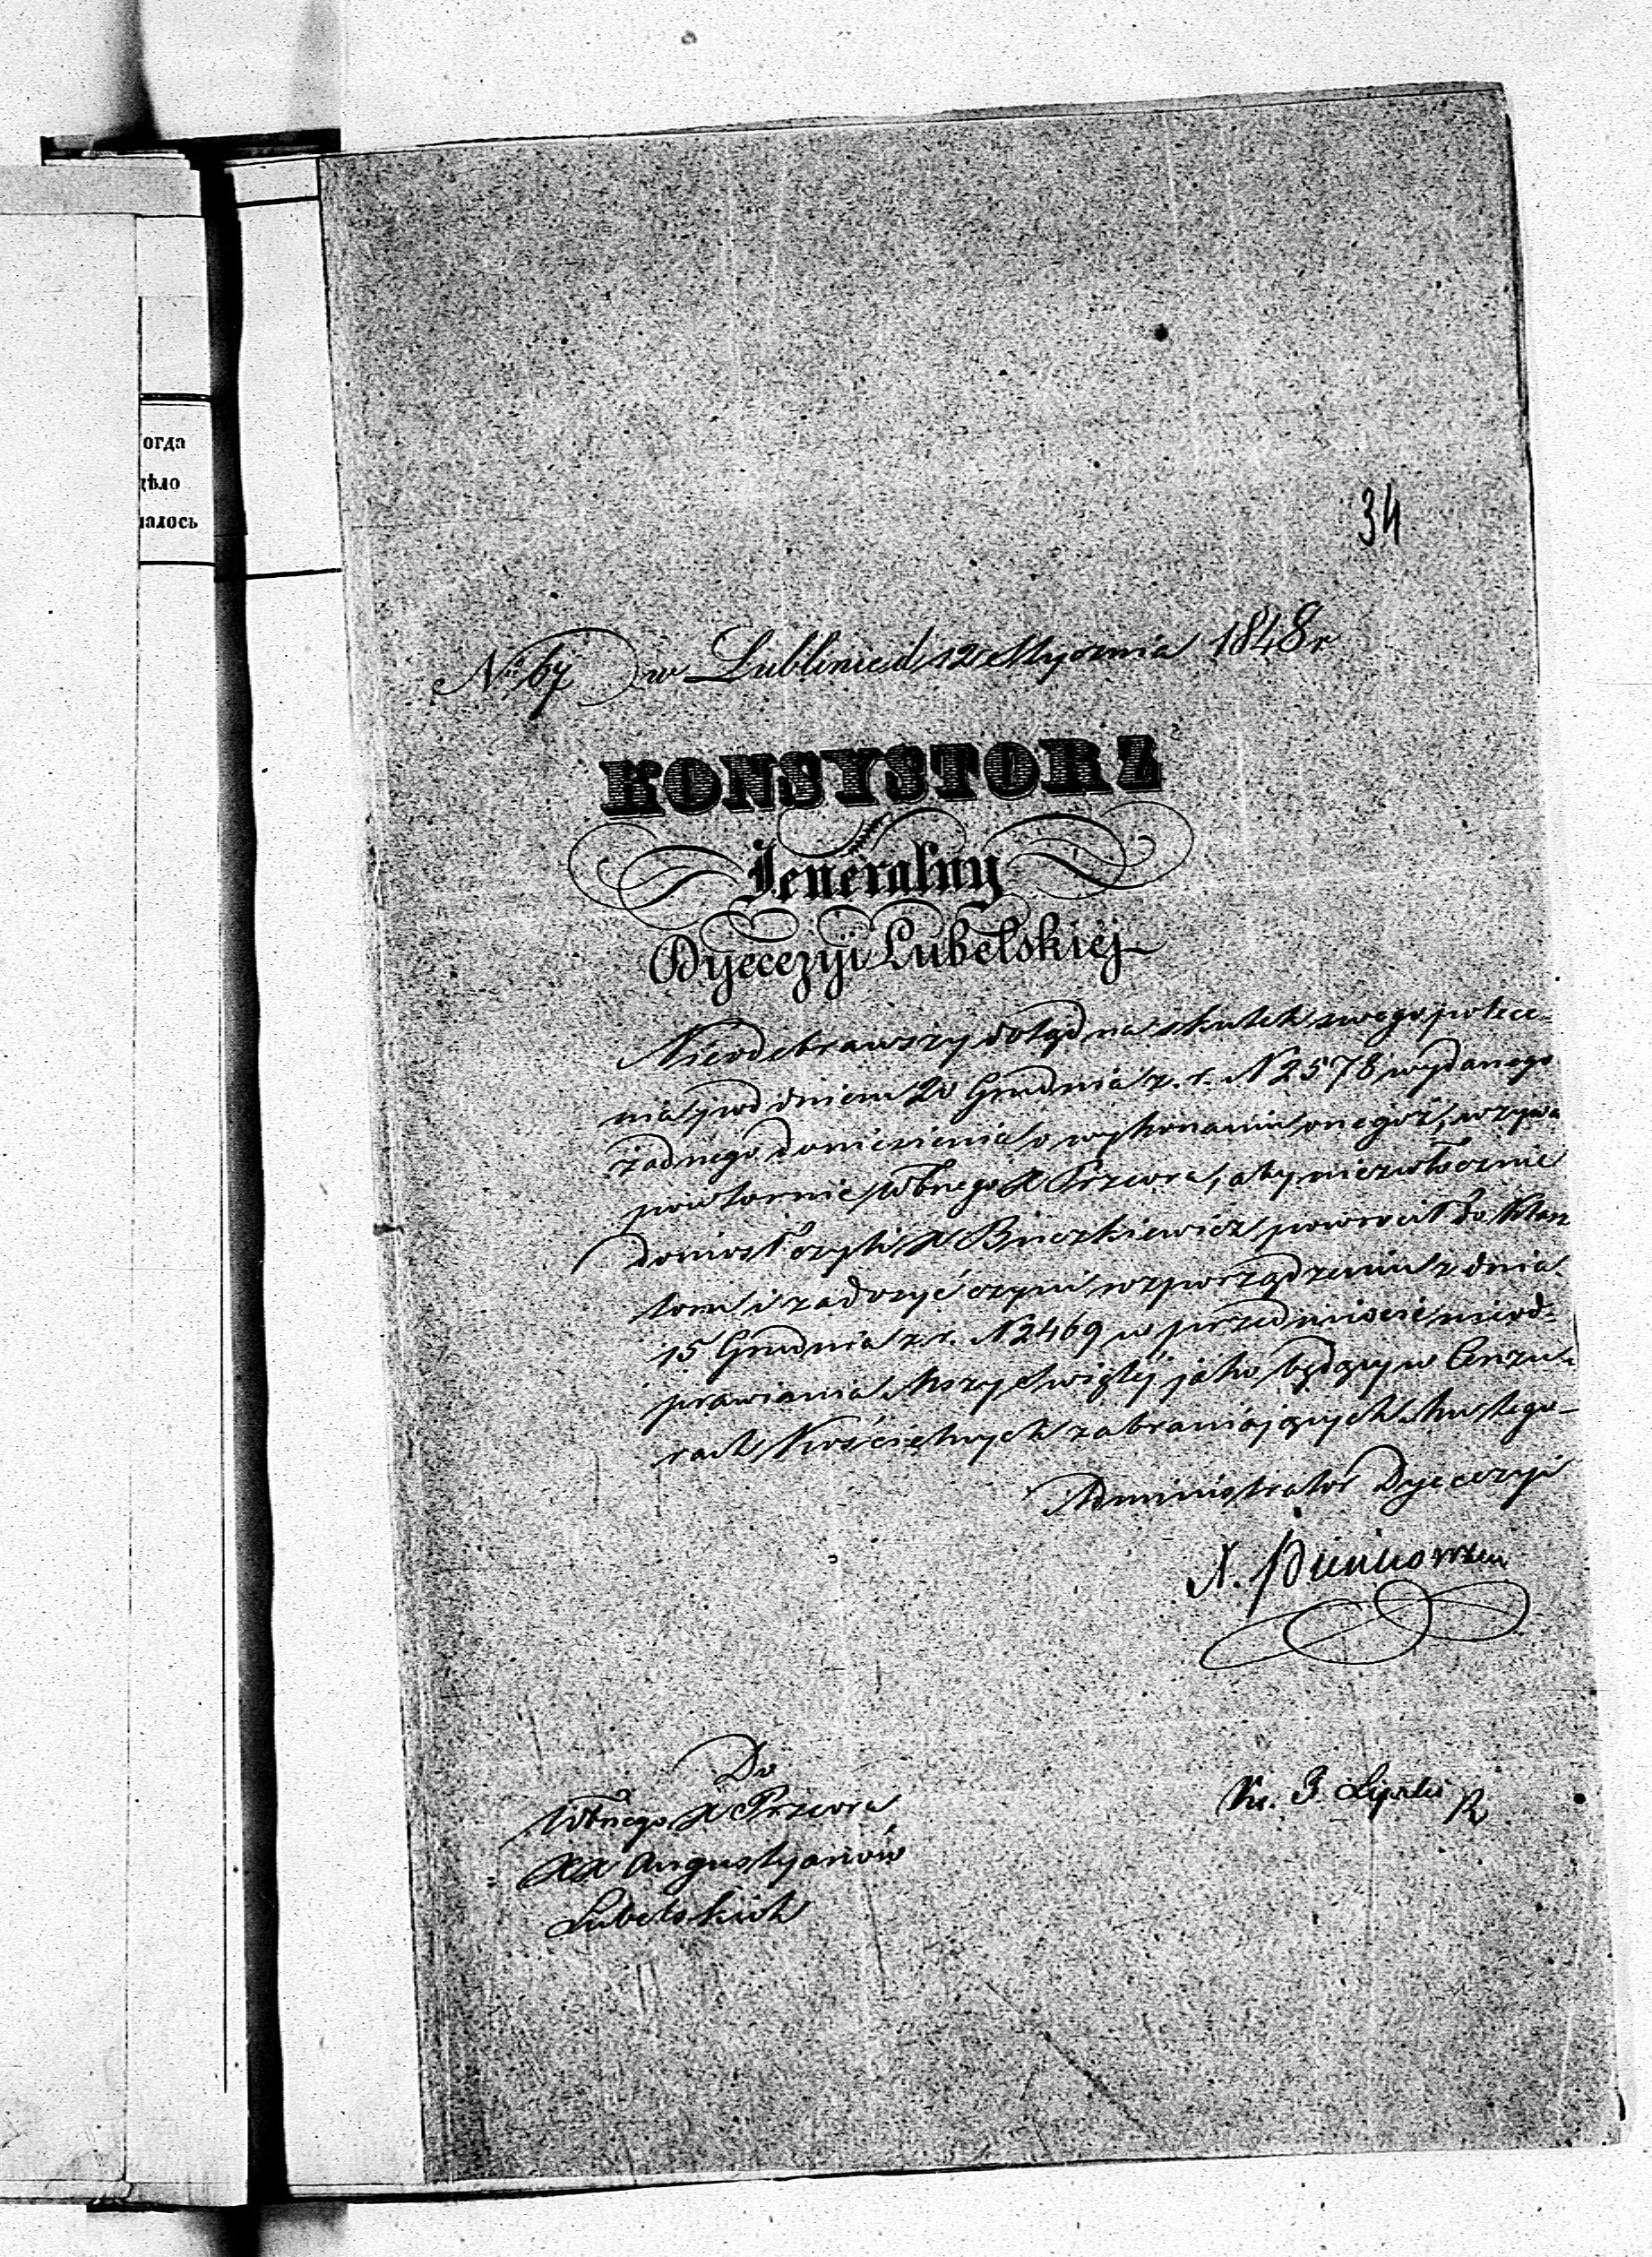 огда
дѣло
палось
34
No 67 w Lublinie d 12 Stycznia 1848 r
KONSYSTORZ
Jeneralny
Dyecezyi Lubelskiej
Nieodebrawszy dotąd na skutek swego polece-
nia pod dniem 20 Grudnia z. r. N 2578 wydanego
żadnego doniesienia o wykonaniu onegoż, wzywa
powtornie Wbnego X Przeora, aby niezwłocznie
doniosł czyli X Buczkiewicz powrocił do Klasz
toru i zadosyć czyni rozporządzeniu z dnia
15 Grudnia z. r. N 2469 w przedmiocie nieod-
prawiania Mszy Swiętej jako będący w Cenzu-
rach Kościelnych zabraniających Mu tego-
Administrator Dyecezyi
X. Pienkowski
Do
Wbnego X Przeora
XX Augustyanów
Lubelskich
Ks. J. Lipski R